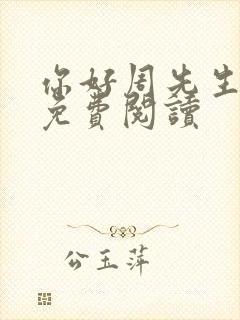 你好周先生
免費閱讀
公玉萍